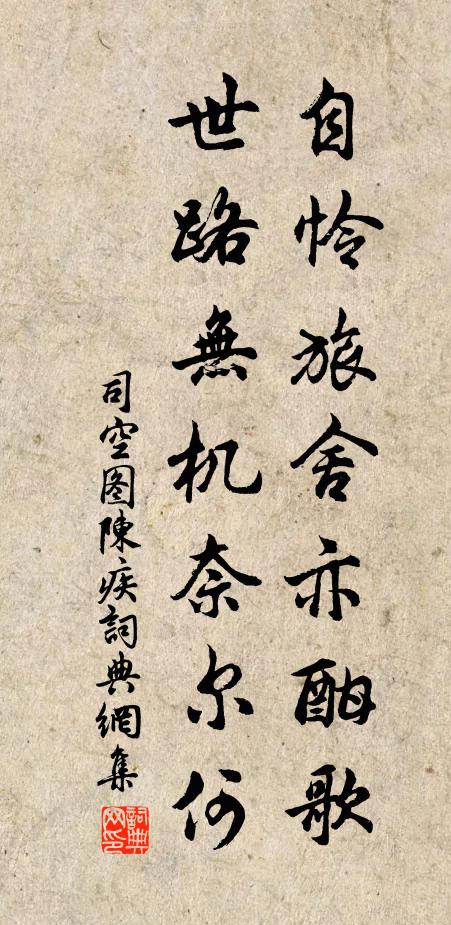 自怜旅舍亦酣歌
世路無机奈尔何
司空图陳疾詞典網集
詞典
网印